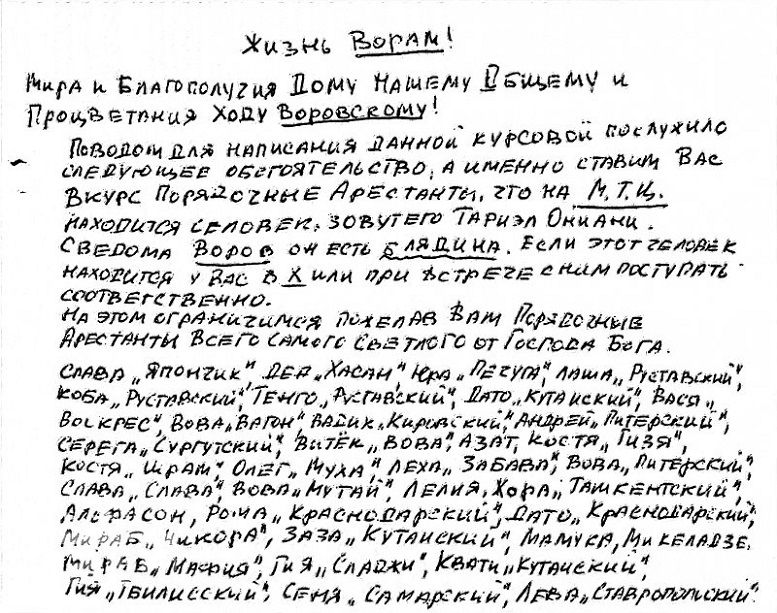 Жизнь Ворам!
Мира и Благополучия Дому Нашему Общему и
Процветания Ходу Воровскому!
Поводом для написания данной курсовой послужило
следующее обстоятельство, а именно ставим Вас
вкурс Порядочные Арестанты, что на М.Т.Ц.
находится человек, зовут его Тариэл Ониани.
Сведома Воров он есть блядина. Если этот человек
находится у Вас в Х или при встрече с ним поступать
соответственно.
На этом ограничимся пожелав Вам Порядочные
Арестанты Всего Самого Светлого от Господа Бога.
Слава „Япончик", Дед „Хасан", Юра „Пичуга", Лаша „Руставский",
Коба „Руставский", Тенго „Руставский", Дато „Кутаиский", Вася „
Воскрес", Вова „Вагон", Вадик „Кировский", Андрей „Питерский",
Серега „Сургутский", Витёк „Вова", Азат, Костя „Гизя",
Костя „Шрам", Олег „Муха", Леха „Забава", Вова „Питерский",
Слава „Слава", Вова „Мутай", Лелия, Хора „Ташкентский",
Альфасон, Рома „Краснодарский", Дато „Краснодарский",
Мираб „Чикора", Заза „Кутаиский", Мамука, Микеладзе,
Мираб „Мафия", Гия „Сладжи", Квати „Кутаиский",
Гия „Тбилисский", Сеня „Самарский", Лева „Ставропольский".